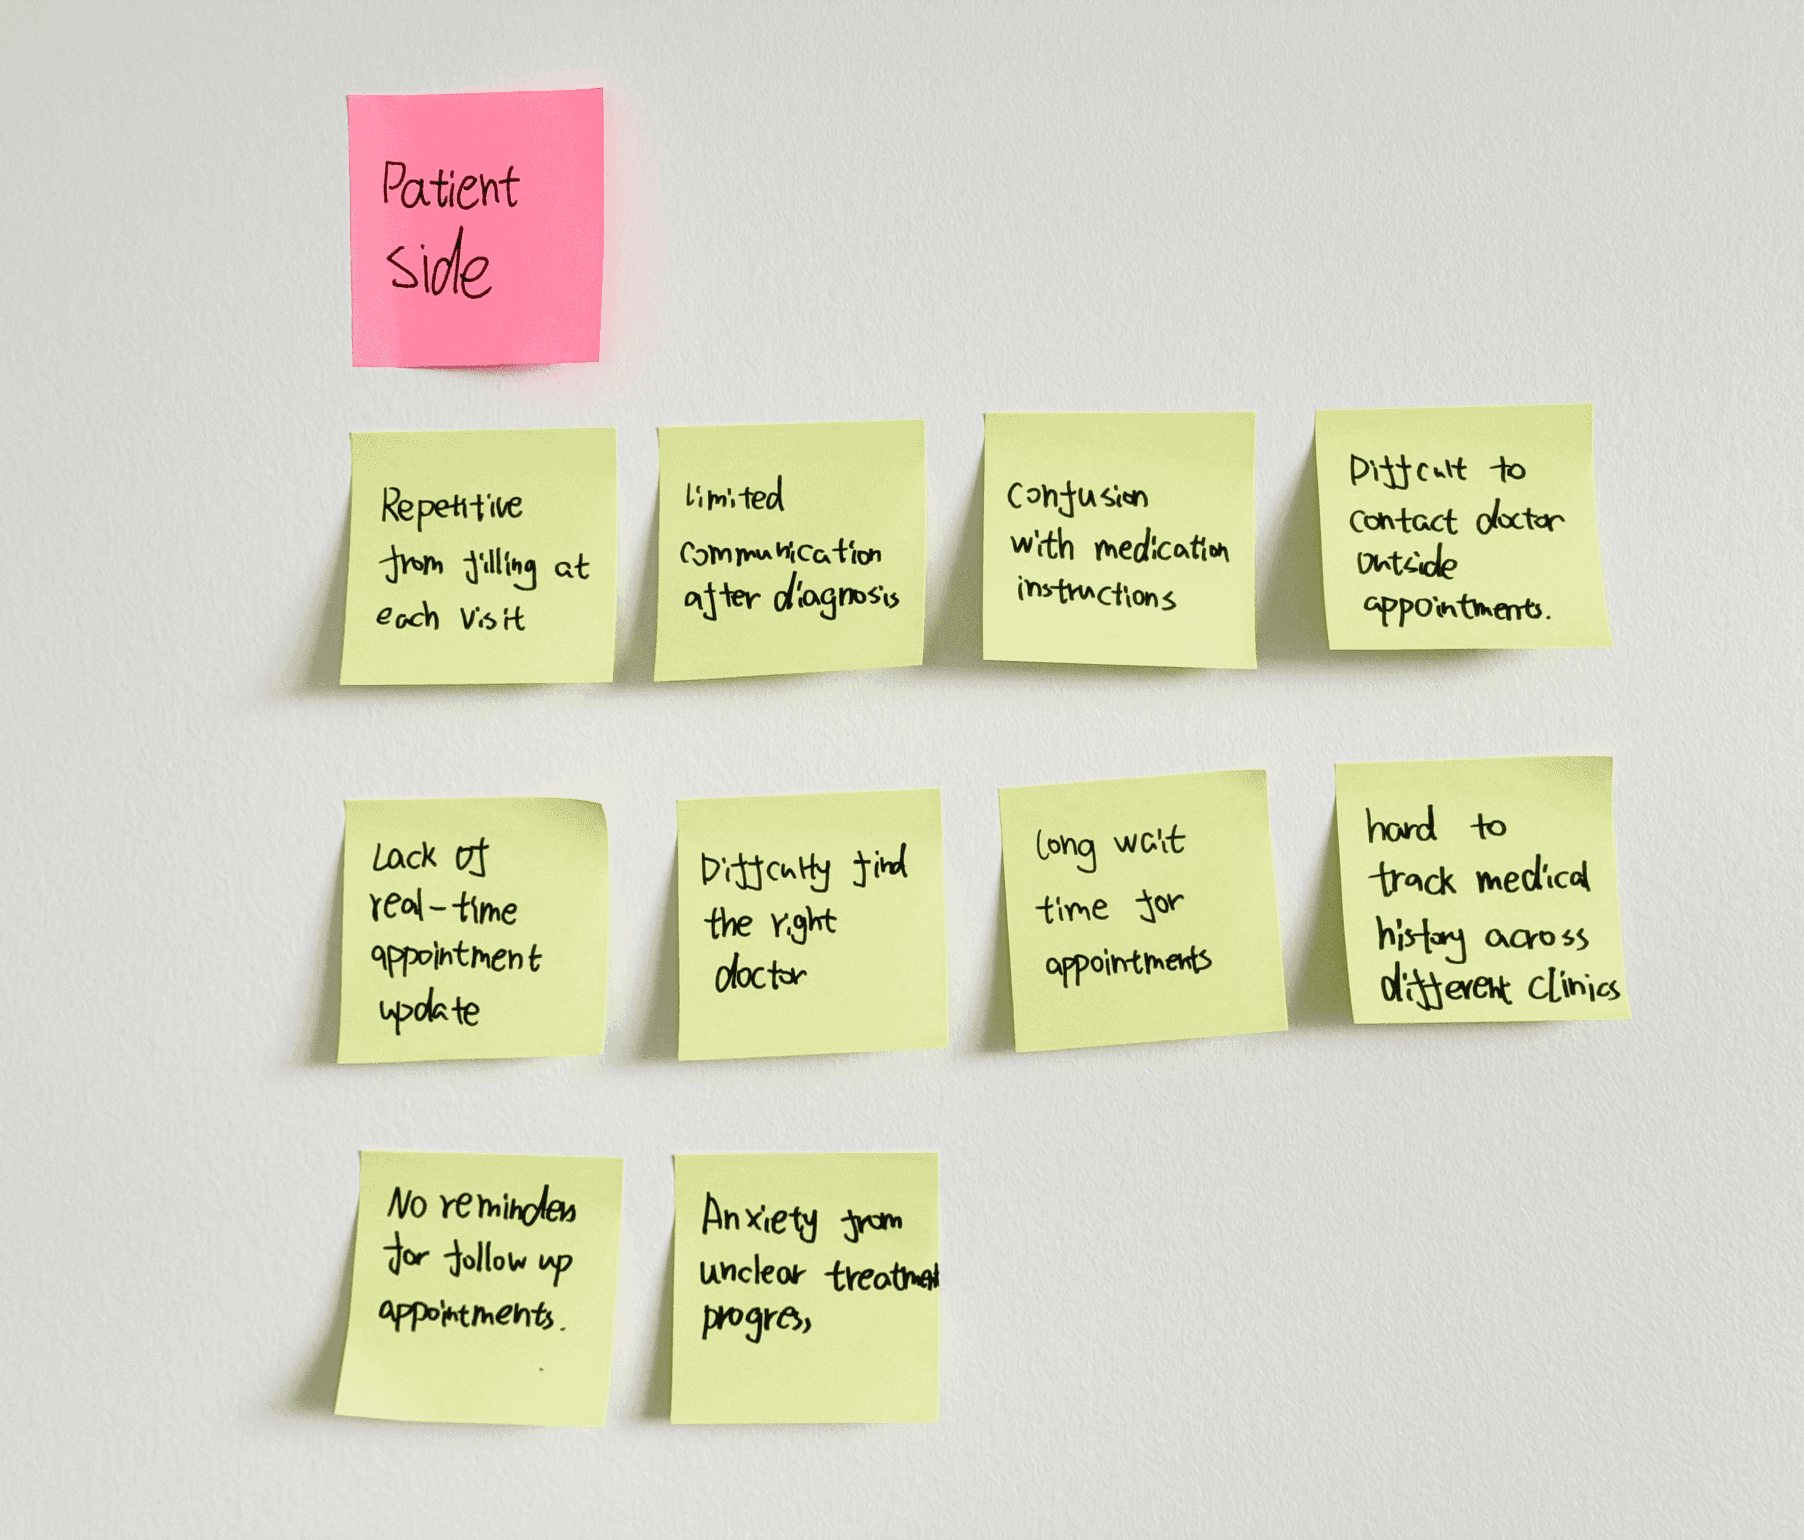 Patient
side
Repetitive
from filling at
each visit
limited
communication
after diagnosis
confusion
with medication
instructions
Diffcult to
contact doctor
outside
appointments.
Lack of
real-time
appointment
update
Diffculty find
the right
doctor
long wait
time for
appointments
hard to
track medical
history across
different clinics
No reminders
for follow up
appointments.
Anxiety from
unclear treatment
progress